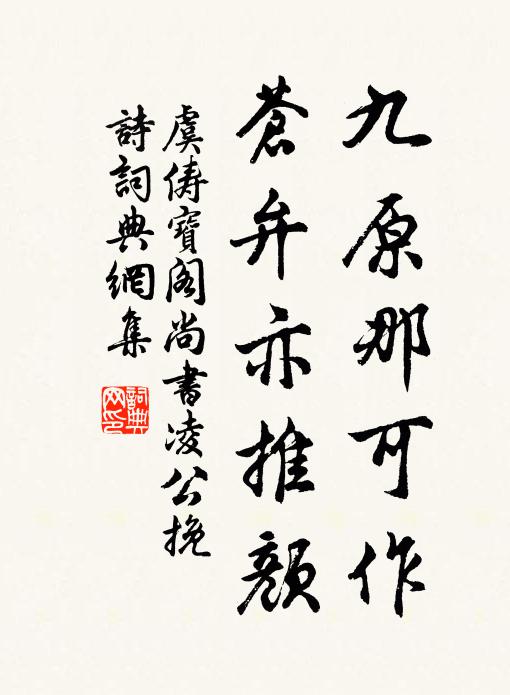 九原那可作
蒼弁亦推顏
虞儔寶閣尚書凌公挽
詩詞典網集
詞典
网印